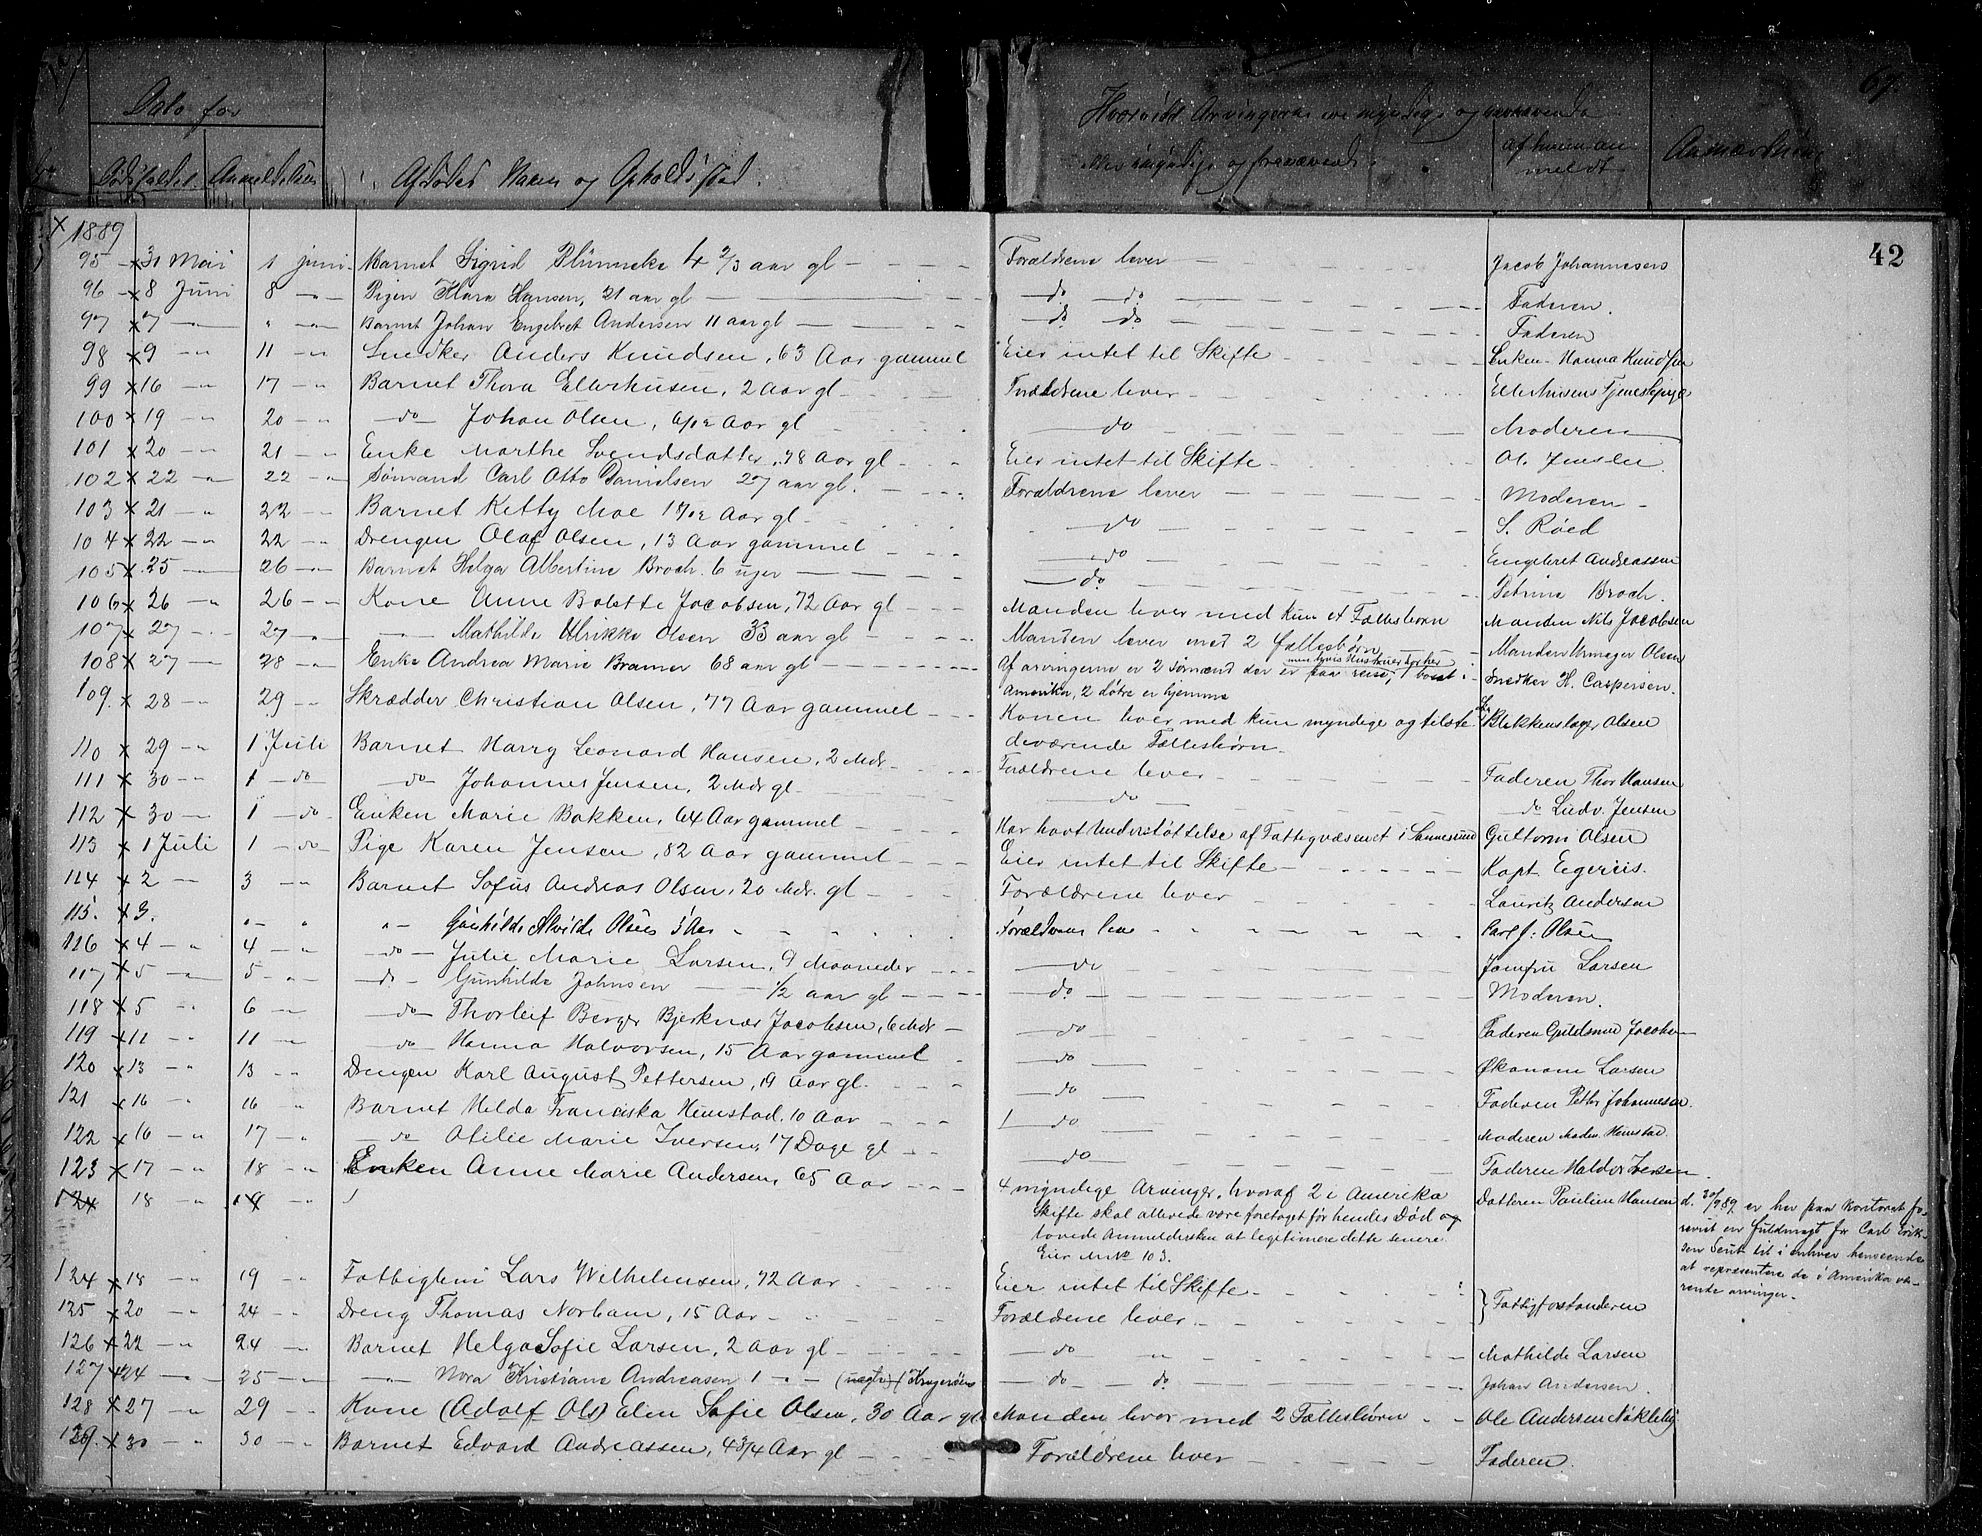 Dato for
Dødsfaldet Anmeldelsen Afdødes Navn og Opholdssted. Hvorvidt Arvingerne ere myndige og nærværende eller umyndige og fraværende af hvem anmeldt Anmærkning
42
1889
95 31 Mai 1 juni Barnet Sigrid Plünneke 4 2/3 aar gl Forældrene lever Jacob Johannesens
96 8 Juni 8 Pigen Klara Hansen, 21 aar gl do do Faderen.
97 7 " Barnet Johan Engebret Andersen 11 aar gl do do Faderen
98 9 11 Snedker Anders Knudsen, 63 Aar gammel Eier intet til Skifte Enken Hanna Knudsen
99 16 17 Barnet Thora Ellerhusen, 2 Aar gl Forældrene lever Ellerhusens Tjenestepige
100 19 20 do Johan Olsen, 6/12 Aar gl do Moderen
101 20 21 Enke Marthe Svendsdatter, 78 Aar gl Eier intet til Skifte Ol. Jensen
102 22 22 Sømand Carl Otto Danielsen 27 aar gl. Forældrene lever Moderen
103 21 22 Barnet Kitty Moe 1 4/12 Aar gl do S. Røed
104 22 22 Drengen Olaf Olsen, 13 Aar gammel do Engebret Andreassen
105 25 26 Barnet Helga Albertine Broch. 6 uger do Petrine Broch.
106 26 26 Kone Anne Bolette Jacobsen, 72 Aar gl Manden lever med kun et Fællesbarn Manden Nils Jacobsen
107 27 27 Mathilde Ulrikke Olsen 33 aar gl Manden lever med 2 fællesbørn Manden Urmager Olsen
108 27 28 Enke Andrea Marie Bramer 68 aar gl Af arvingerne er 2 sømænd der er paa reise, 1 bosat i Snedker H. Caspersen.
Amerika, 2 døtre er hjemme
109. 28 29 Skrædder Christian Olsen, 77 Aar gammel Konen lever med kun myndige og tilste- Blikkenslager Olsen
deværende Fællesbørn.
110 29 1 Juli Barnet Harry Leonard Hansen, 2 Mdr. Forældrene lever Faderen Thor Hansen
111 30 1 do do Johannes Jensen, 2 Mdr gl do do Ludv. Jensen
112 30 1 do Enken Marie Bakken, 64 Aar gammel Har havt Understøttelse af Fattigvæsenet i Sannesund Guttorm Olsen
113 1 Juli 1 do Pige Karen Jensen, 82 Aar gammel Eier intet til Skifte Kapt. Egerius.
114 2 3 Barnet Sofus Andreas Olsen, 20 Mdr. gl Forældrene lever Lauritz Andersen
115. 3. " Gunhilde Alvilde Olsen 5 Aar Forældrene leve Carl J. Olsen
116 4 4 do Julie Marie Larsen, 9 Maaneder do Jomfru Larsen
117 5 5 do Gunhilde Johnsen 1/2 aar gl do Moderen.
118 5 6 do Thorleif Berger Bjerknæs Jacobsen, 6 Mdr do Faderen Guldsmed Jacobsen
119 11 11 do Hanna Halvorsen, 15 Aar gammel do Økonom Larsen
120 13 13 Drengen Karl August Pettersen, 9 Aar gl. do Faderen Petter Johannesen.
121 16 16 Barnet Hilda Franciska Hemstad. 10 Aar do Moderen Madm. Hemstad.
122 16 17 do Otilie Marie Iversen, 17 Dage gl do Faderen Haldor Iversen
123 17 18 Enken Anne Marie Andersen, 65 Aar 4 myndige Arvinger, hvoraf 2 i Amerika Datteren Pauline Hansen
124 18 19 Skifte skal allerede være foretaget før hendes Død og
lovede Anmeldersken at legitimere dette senere
Eier M.No 103.
d. 30/9 89 er her paa Kontoret fo-
revist en fuldmagt fr Carl Erik-
sen Sent til i enhver henseende
at repræsentere de i Amerika væ-
rende arvinger.
124 18 19 Fattiglem Lars Wilhelmsen, 72 Aar Eier intet til Skifte Fattigforstanderen
125 20 24 Dreng Thomas Norham, 15 Aar Forældrene lever
126 22 24 Barnet Helga Sofie Larsen, 2 Aar gl do Mathilde Larsen
127 24 25 Nora Kristiane Andreasen 1 (uægte) do do Johan Andersen.
128 27 29 Kone (Adolf Ols) Elen Sofie Olsen, 30 Aar gl Manden lever med 2 Fællesbørn Ole Andersen Nökleby
129. 30 30 Barnet Edvard Andreassen, 4 3/4 Aar gl Forældrene lever Faderen.